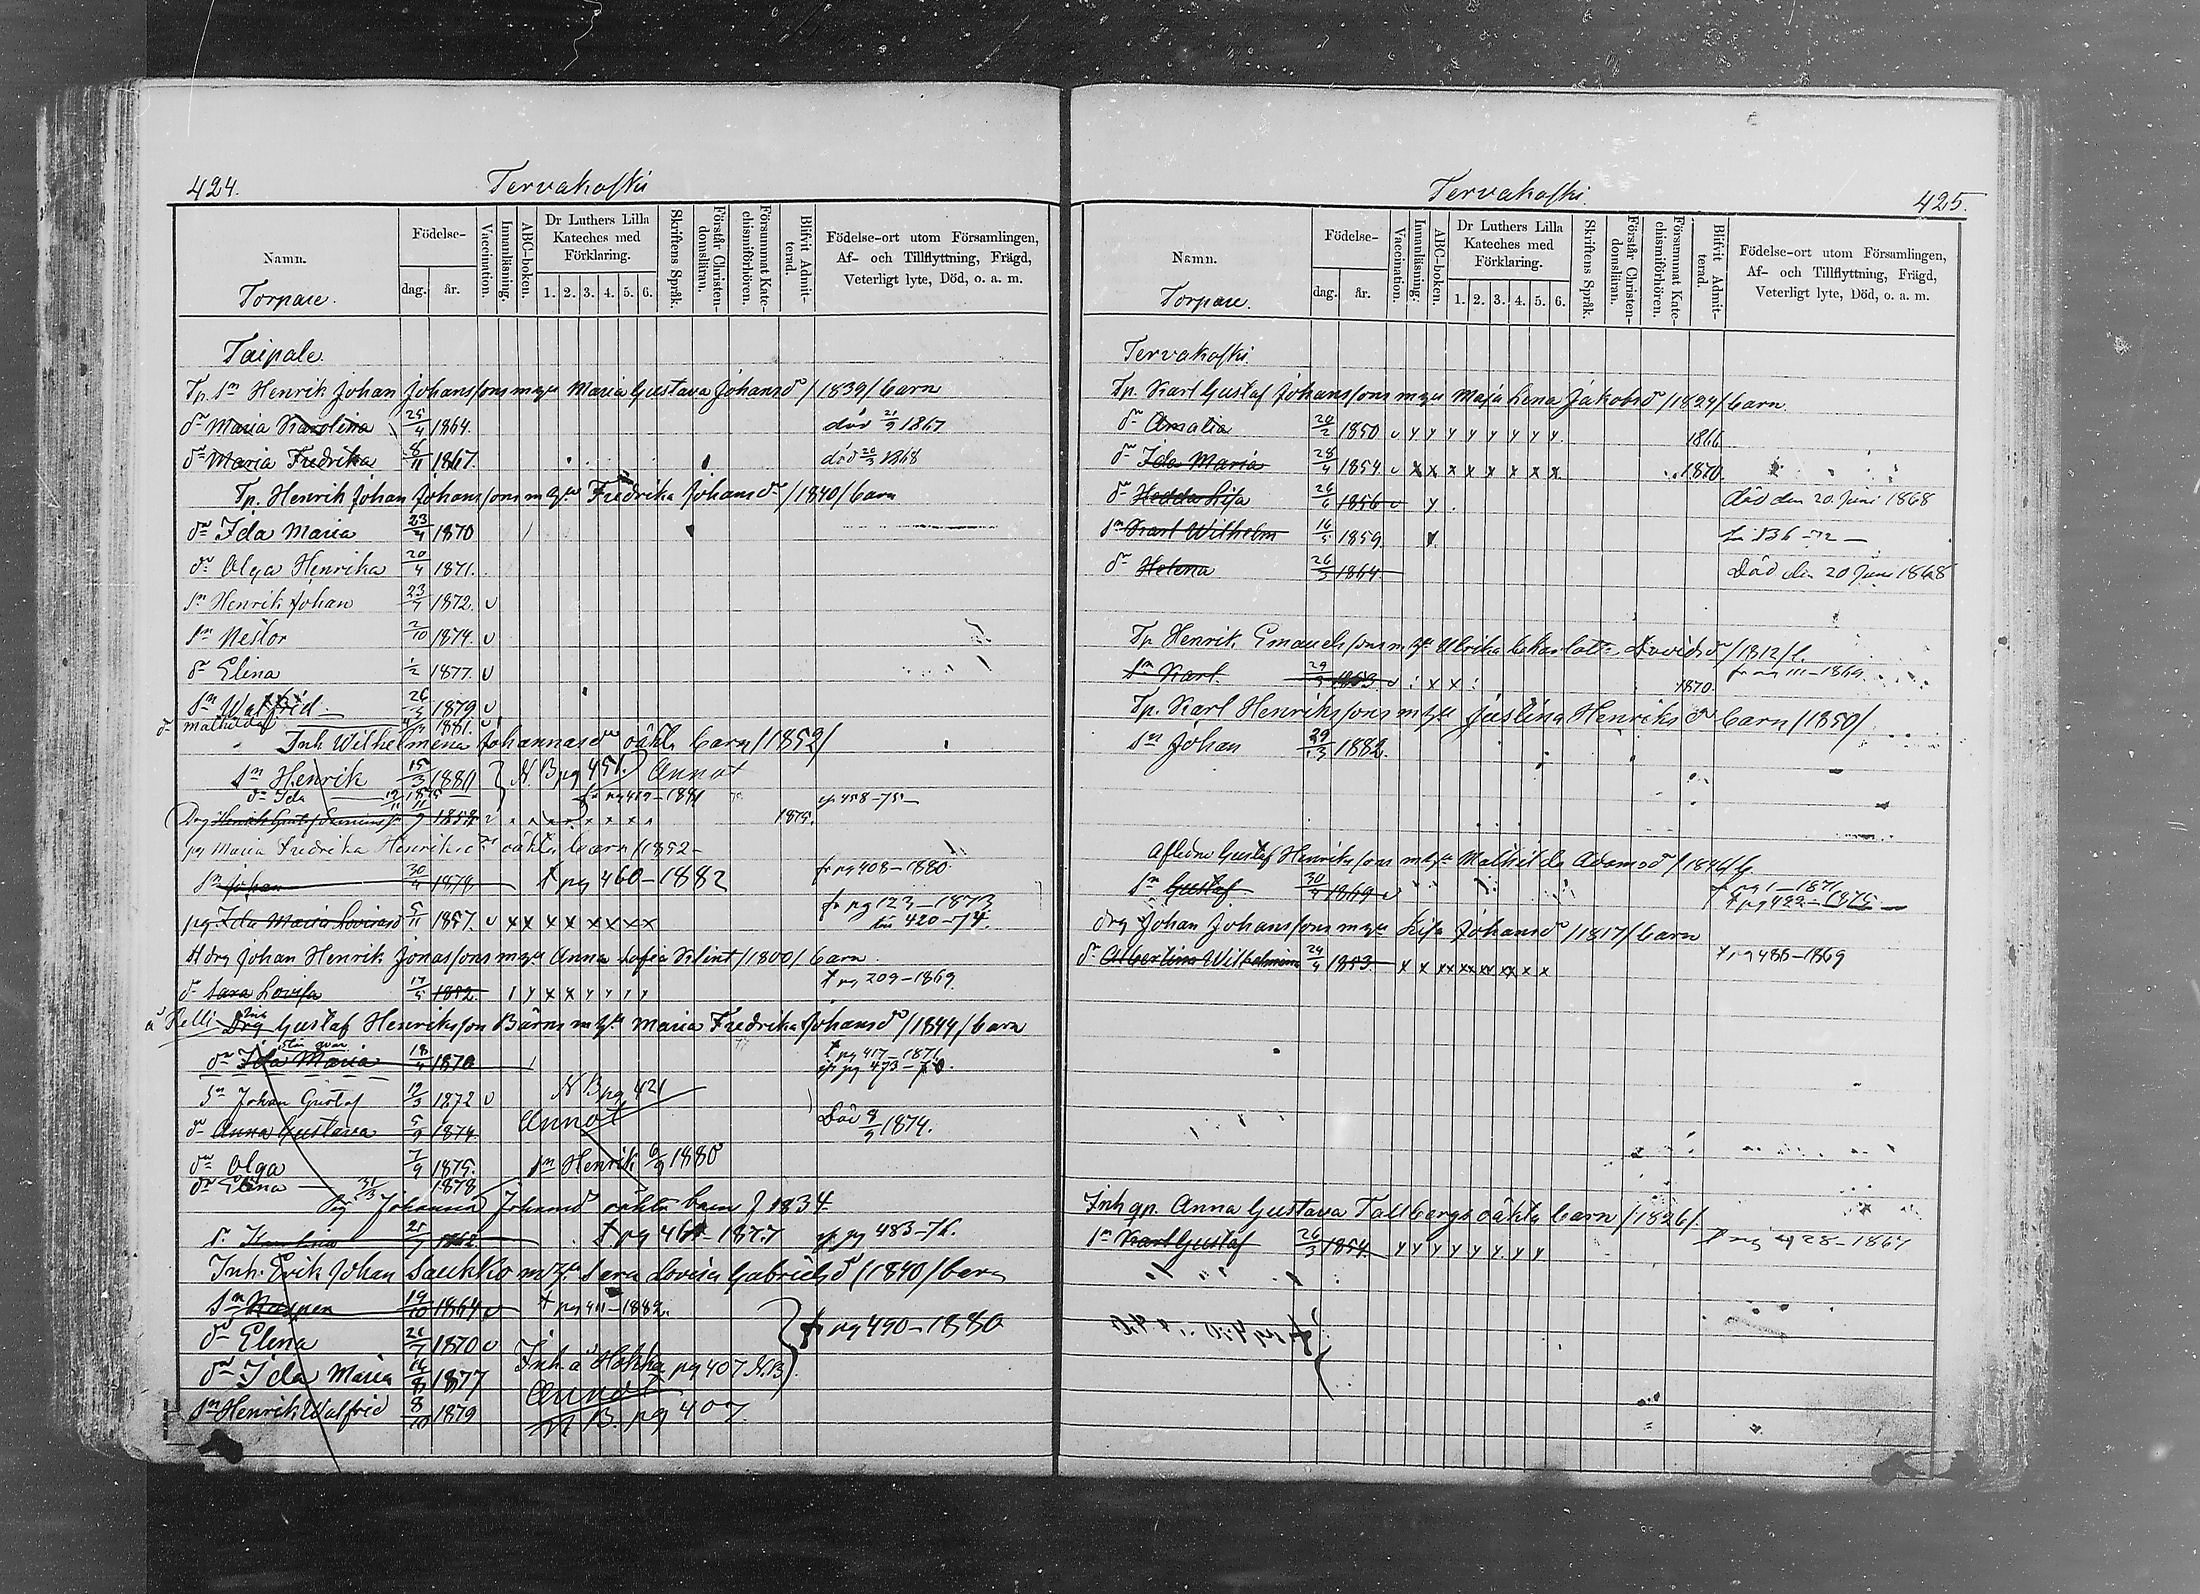 424.
Tervakoski
Namn.
Torpare.
Födelse-
dag.
år.
Vaccination.
Innanläsning.
ABC-boken.
Dr Luthers Lilla
Kateches med
Förklaring.
1. 2. 3. 4. 5. 6.
Skriftens Språk.
Förstår Christen-
domsläran.
Försummat Kate-
chismiförhören.
Blifvit Admit-
terad.
Födelse-ort utom Församlingen,
Af- och Tillflyttning, Frägd,
Veterligt lyte, Död, o. a. m.
Taipale
Tp. Sn Henrik Johan Johanssons m hu Maria Gustava Johansdr /1839/ barn
dr Maria Karolina 25/4 1864. död 21/9 1867
dr Maria Fredrika 8/11 1867. död 20/3 1868
Tp. Henrik Johan Johanssons m hu Fredrika Johansdr /1840/ barn
dr Ida Maria 23/4 1870
dr Olga Henrika 20/4 1871.
sn Henrik Johan 23/7 1872. v
sn Nestor 2/10 1874. v
dr Elina 1/2 1877. v
sn Walfrid 26/3 1879 v
dr Mathilda 1881. v
Inh Wilhelmina Johannasdr oäkta barn /1852/
sn Henrik 15/3 1880 } N.B pg 451. Annot
dr Ida
1858 v 1875.
pg Maria Fredrika Henriksdr oäkta barn /1852
sn Johan 30/4 1878 t pg 460-1882 fr pg 408-1880
pg Ida Maria Lovisasd 5/11 1857. v x x x x x x x x fr pg 123-1873
till 420-74.
Johan Henrik Jonassons m hu Anna Sofia Klint /1800/ barn
dr Sara Lovisa 17/5 1852. t pg 209-1869.
Helli Drg Gustaf Henriksson Bärns m hu Maria Fredrika Johansdr /1844/ barn
dr Ida Maria 18/4 1870 t pg 417-1871
pg 473-
sn Johan Gustaf 12/3 1872 v N B pg 421
dr Anna Gustava 5/9 1874. Annot Död 8/9 1874.
dr Olga 7/9 1875. sn Henrik 6/9 1880
dr Elina 31/3 1878
Johanna Johansdr oäkta barn / 1834
dr 1862 t pg 461-1877 pg 483-76.
Inh. Erik Johan Saukko m hu Sara Lovisa Gabrielsdr /1840/ barn
sn Kasper 19/10 1864 v t pg 411-1882.
dr Elina 1870 v } fr pg 490-1880
dr Ida Maria 16/8 1877 Inh. å Hokka pg 407. N.B
sn Henrik Walfrid 8/10 1879 Annot
N B. pg 407.
Tervakoski.
425.
Namn.
Torpare.
Födelse-
dag.
år.
Vaccination.
Innanläsning.
ABC-boken.
Dr Luthers Lilla
Kateches med
Förklaring.
1. 2. 3. 4. 5. 6.
Skriftens Språk.
Förstår Christen-
domsläran.
Försummat Kate-
chismiförhören.
Blifvit Admit-
terad.
Födelse-ort utom Församlingen,
Af- och Tillflyttning, Frägd,
Veterligt lyte, Död, o. a. m.
Tervakoski
Tp. Karl Gustaf Johanssons m hu Maja Lena Jakobsdr /1824/ barn
dr Amalia 20/2 1850 v y y y y y y y y. 1866
dr Ida Maria 28/4 1854 v x x x x x x x x. 1870.
dr Hedda Lisa 26/6 1856 v y. död den 20 Juni 1868
sn Karl Wilhelm 16/5 1859 y.
dr Helena 26/3 1864 Död den 20 Juni 1868
Tp Henrik Emanuelssons m hu Ulrika Davidsdr /1812/
sn Karl 29/3 1853 v x x 1870. fr pg 111-1869.
Tp. Karl Henrikssons m hu Justina Henriksdr barn /1850/
sn Johan 29/3 1882.
Aflidne Gustaf Henrikssons m hu Mathilda Adamsdr /1846/
sn Gustaf 30/4 1869 v fr pg 1-1871
t pg 422-1875
drg Johan Johanssons m hu Lisa Johansdr /1817/ barn
dr Albertina Wilhelmina 24/4 1853 x x x x x x x x x x t pg 486-1869
Inh qp. Anna Gustava Tallbergs oäkta barn /1826/.
sn Karl Gustaf 26/3 1854 y y y y y y y y 28-1867